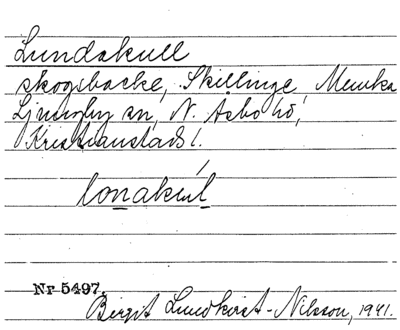 Lundskull
skogsbacke, Skillinge, Munka
Ljungby sn, N. Åsbo hd,
Kristianstads l.
lonakul
Nr 5497.
Birgit Lundkvist-Nilsson, 1941.